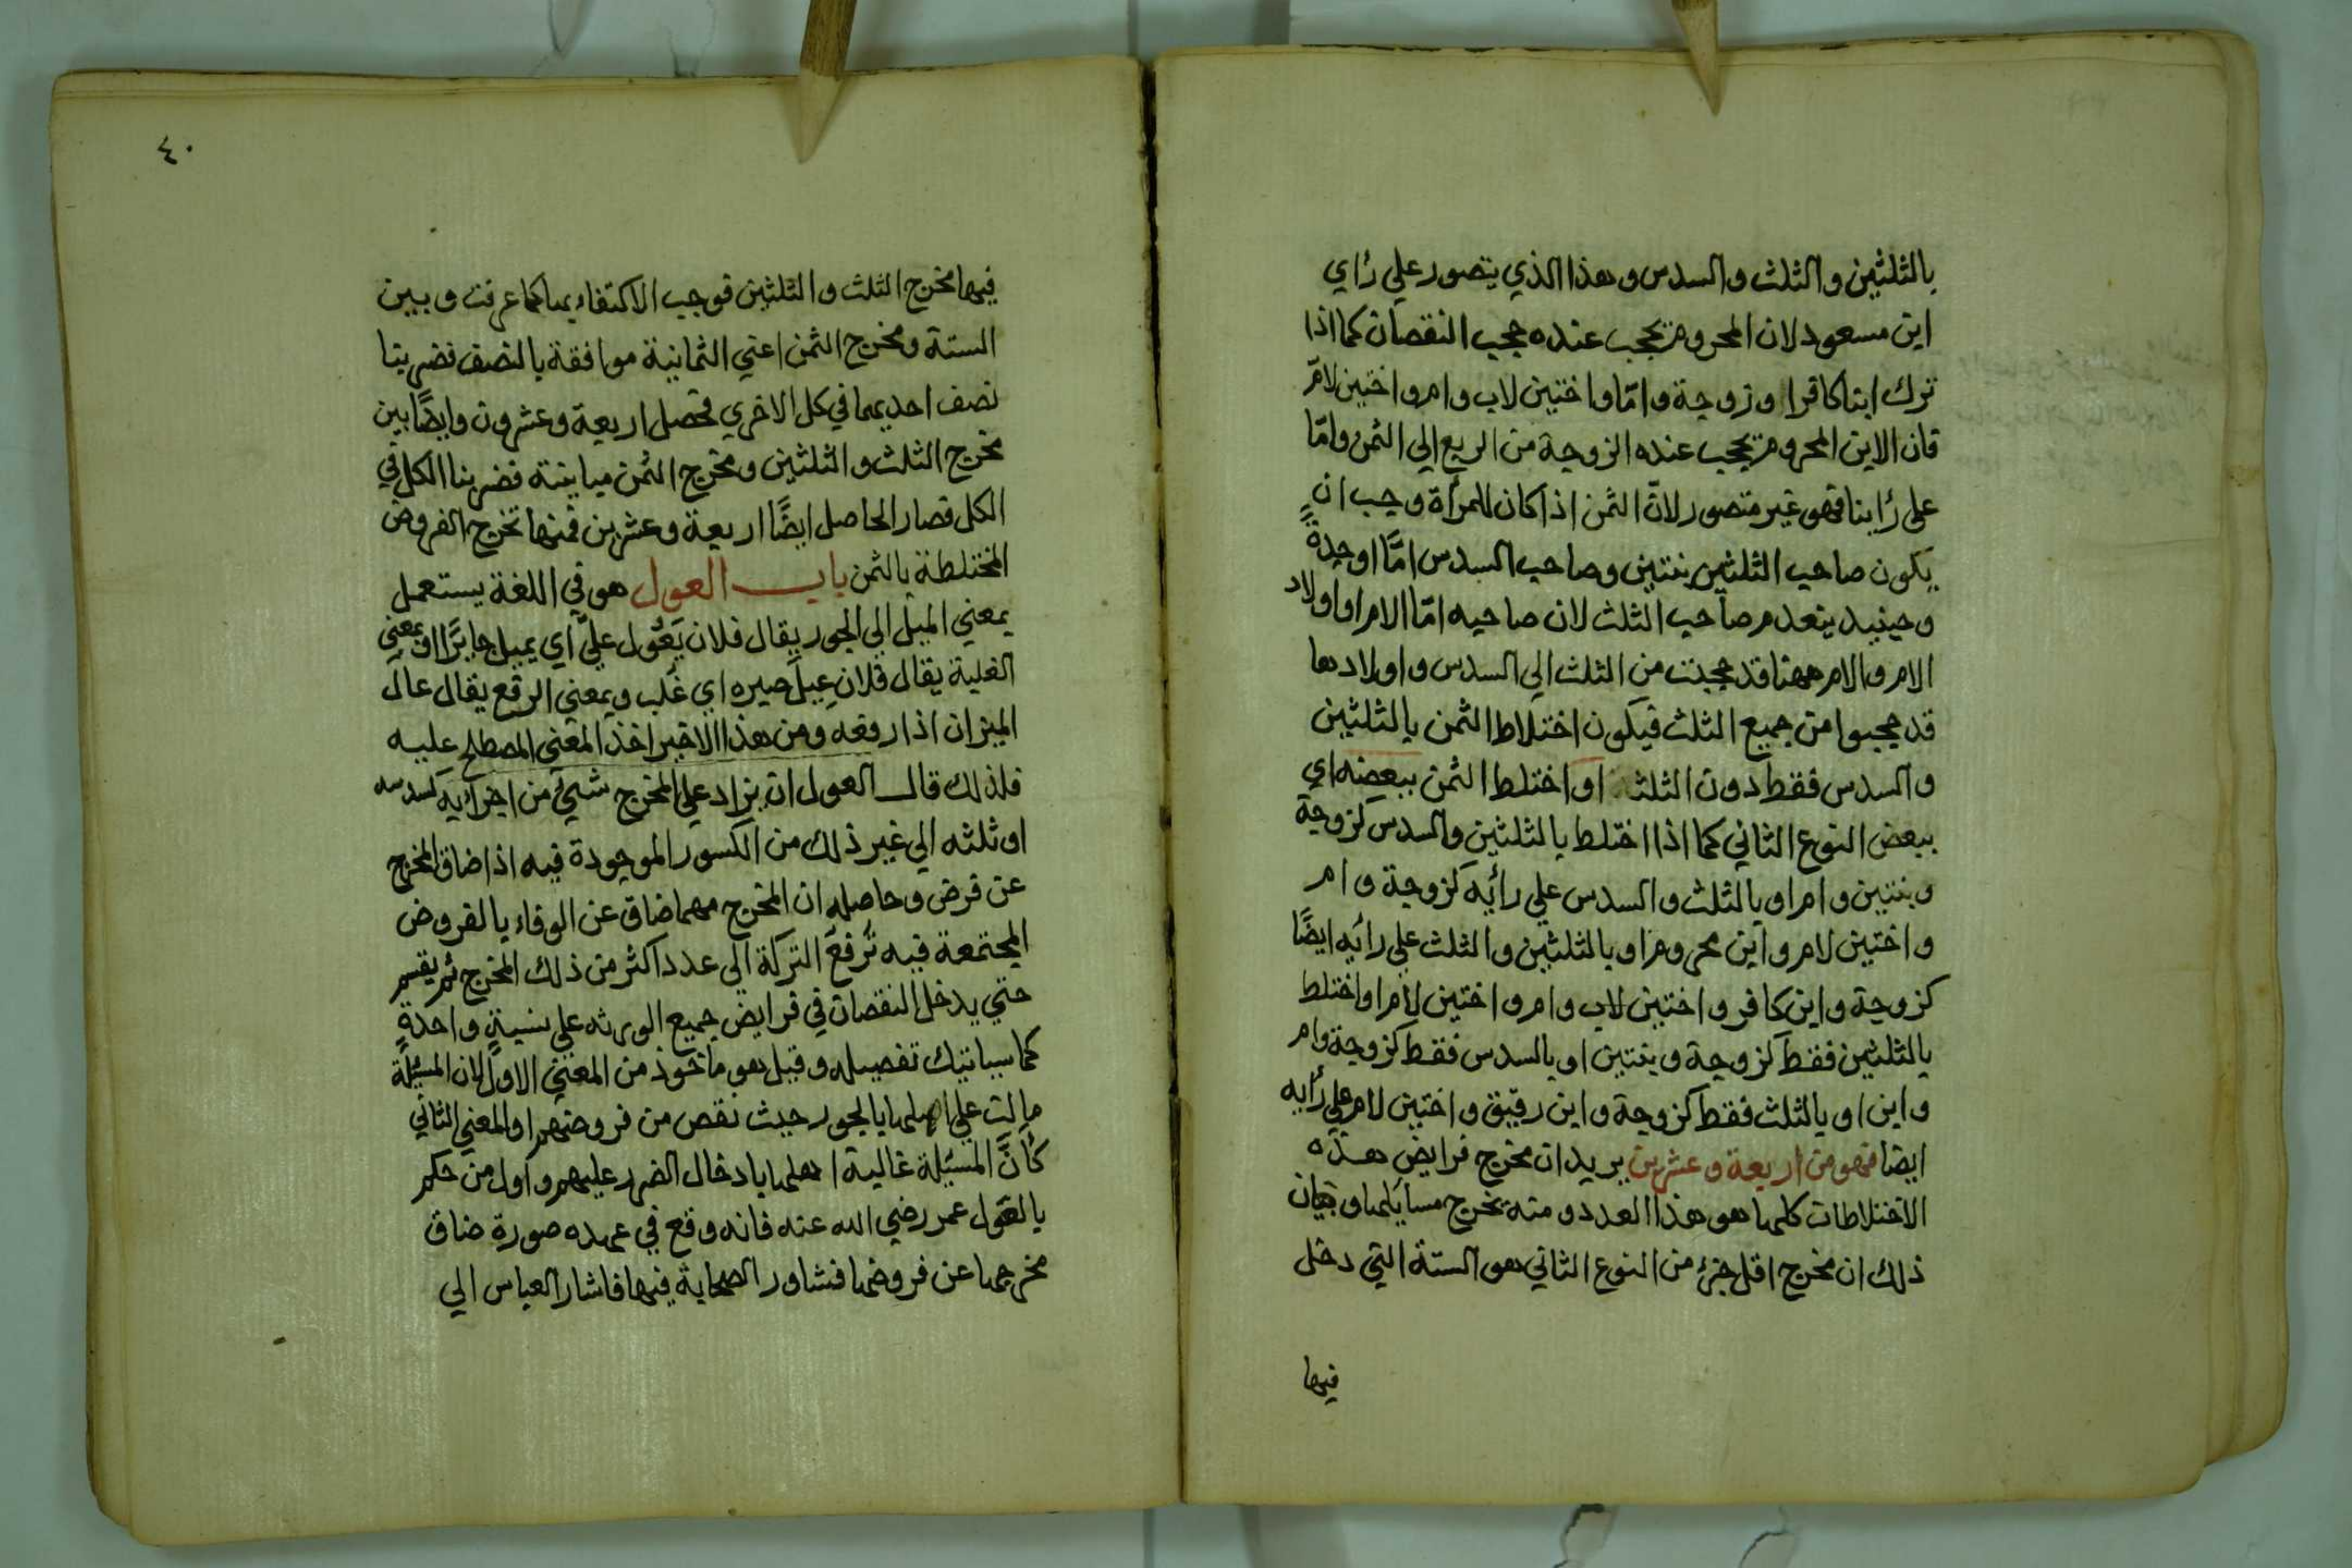 بالثلثين والثلث والسدس وهذا الذي يتصور علي رأي
ابن مسعود لان المحروم يحجب عنده حجب النقصان كما اذا
ترك ابنا كافرا وزوجة وامّا واختين لاب وام واختين لامّ
فان الابن المحروم يحجب عنده الزوجة من الربع الي الثمن وامّا
علي رأينا فهو غير متصور لانّ الثمن اذا كان للمرأة وجب ان
يكون صاحب الثلثين بنتين وصاحب السدس امّا او جدةً
وحينيد ينعدم صاحب الثلث لان صاحبه امّا الام او اولاد
الام والام ههنا قد حجبت من الثلث الي السدس واولادها
قد حجبوا من جميع الثلث فيكون اختلاط الثمن بالثلثين
والسدس فقط دون الثلث او اختلط الثمن ببعضه اي
ببعض النوع الثاني كما اذا اختلط بالثلثين والسدس كزوجة
وبنتين وام او بالثلث والسدس علي رأيه كزوجة وام
واختين لام وابن محروم او بالثلثين والثلث علي رأيه ايضًا
كزوجة وابن كافر واختين لاب وام واختين لام او اختلط
بالثلثين فقط كزوجة وبنتين او بالسدس فقط كزوجة وام
وابن او بالثلث فقط كزوجة وابن رقيق واختين لام علي رأيه
ايضا فهو من اربعة وعشرين يريد ان مخرج فرايض هذه
الاختلاطات كلها هو هذا العدد ومنه تخرج مسايلها وبيان
ذلك ان مخرج اقل جزء من النوع الثاني هو الستة التي دخل
فيها
٤٠
فيها مخرج الثلث والثلثين فوجب الاكتفاء بها كما عرفت وبين
الستة ومخرج الثمن اعني الثمانية موافقة بالنصف فضربنا
نصف احديهما في كل الاخري فحصل اربعة وعشرون وايضًا بين
مخرج الثلث والثلثين ومخرج الثمن مباينة فضربنا الكل في
الكل فصار الحاصل ايضًا اربعة وعشرين فمنها تخرج الفروض
المختلطة بالثمن باب العول هو في اللغة يستعمل
بمعني الميل الي الجور يقال فلان يَعُول عليّ اي يميل جايرًا او بمعني
الغلبة يقال فلان عِيلَ صبره اي غُلب وبمعني الرفع يقال عال
الميزان اذا رفعه ومن هذا الاخير اخذ المعني المصطلح عليه
فلذلك قال العول ان يزاد علي المخرج شيء من اجزايه كسدسه
او ثلثه الي غير ذلك من الكسور الموجودة فيه اذا ضاق المخرج
عن فرض وحاصله ان المخرج مهما ضاق عن الوفاء بالفروض
المجتمعة فيه تُرفعَ التركة الي عدد اكثر من ذلك المخرج ثم يقسم
حتي يدخل النقصان في فرايض جميع الورثه علي نسبةٍ واحدةٍ
كما سياتيك تفصيله وقيل هو ماخوذ من المعني الاول لان المسئلة
مالت علي اهلها بالجور حيث نقص من فروضهم او المعني الثاني
كأنّ المسئلة غالبة اهلها بادخال الضرر عليهم واول من حكم
بالعول عمر رضي الله عنه فانه وقع في عهده صورة ضاق
مخرجها عن فروضها فشاور الصحابة فيها فاشار العباس الي